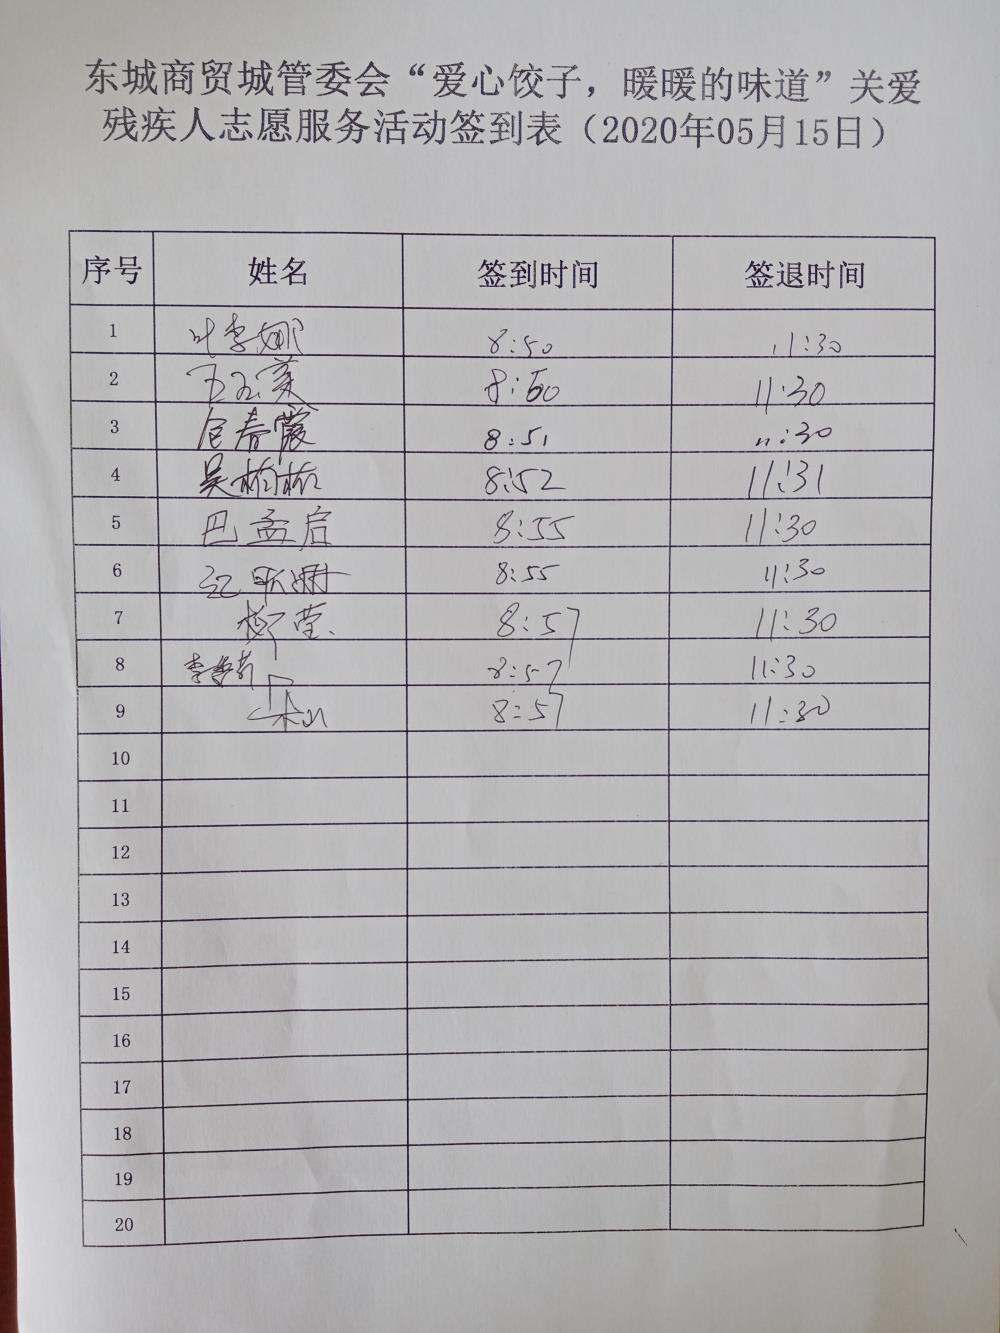 东城商贸城管委会“爱心饺子，暖暖的味道”关爱
残疾人志愿服务活动签到表（2020年05月15日）
序号 姓名 签到时间 签退时间
1 叶李娜 8:50 11:30
2 王玉英 8:50 11:30
3 包春霞 8:51 11:30
4 吴栋栋 8:52 11:31
5 巴孟启 8:55 11:30
6 8:55 11:30
7 柳莹 8:57 11:30
8 李 8:57 11:30
9 8:57 11:30
10
11
12
13
14
15
16
17
18
19
20